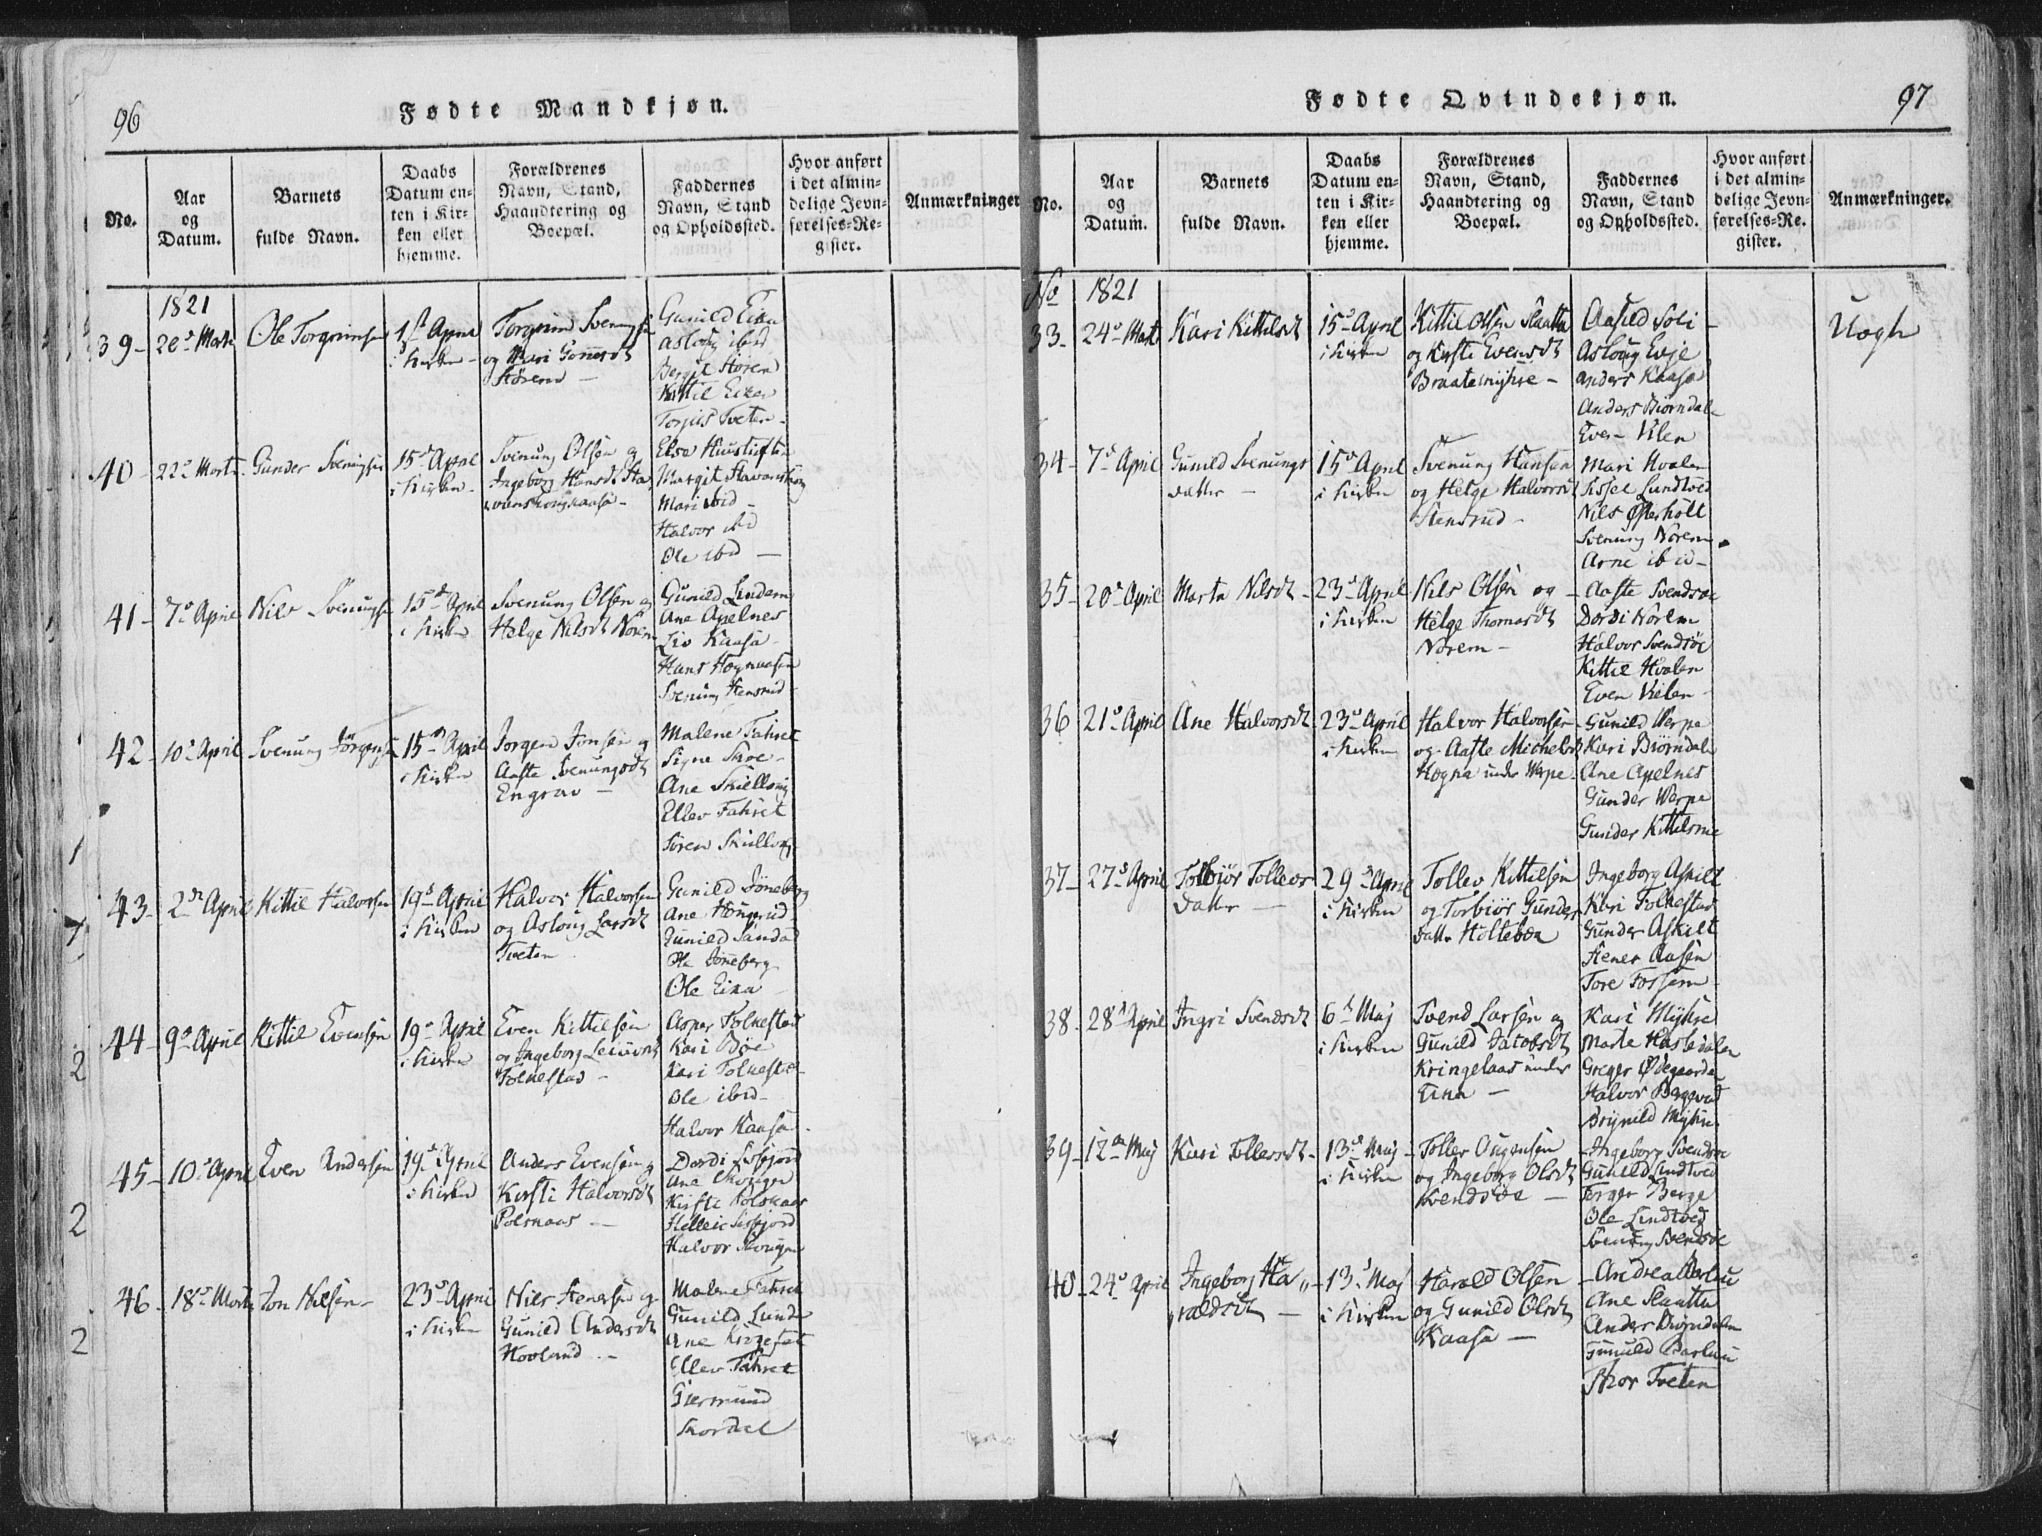 96
Fødte Mandkjøn.
No.
Aar
og
Datum.
Barnets
fulde Navn.
Daabs
Datum en-
ten i Kir-
ken eller
hjemme.
Forældrenes
Navn, Stand,
Haandtering og
Boepæl.
Faddernes
Navn, Stand
og Opholdssted.
Hvor anført
i det almin-
delige Jevn-
førelses-Re-
gister.
Anmærkninger
1821
39-
20d Marts
Ole Torgrimsen
1st April
i Kirken-
Torgrim Svenungsen
og Mari Gonnersdt
Støren -
Gunild Eika
Asloug ibid
Bergit Støren
Kittil Eika
Torjus Tveten-
40-
22d Marts
Gunder Svenungsen
15d April
i Kirken-
Svenung Olsen og
Ingeborg Hansdt
Else
Margit
Mari ibid-
Halvor ibid
Ole ibid-
41-
7d April
Nils Svenungsen
15d April
i Kirken
Svenung Olsen og
Helge Nilsdt Norem
Gunild Lindem
Ane Apelnes
Liv Kaasa
Hans
Svenung Stensrud
42-
10d April
Svenung Jörgensen
15d April
i Kirken
Jorgen Jonsen og
Aaste Svenungsdt
Engrav -
Malene Fahret
Signe
Ane
Ellev Fahret
Søren
43-
2dn April
Kittil Halvorsen
19d April
i Kirken
Halvor Halvorsen
og Aslong Larsdt
Tveten
Gunild Jöneberg
Ane
Gunild
Ole Jöneberg
Ole Eika
44-
9d April
Kittil Evensen
19d April
i Kirken
Even Kittilsen
og Ingeborg
Folkestad -
Asper Folkestad
Kari Böe
Kari Folkestad
Ole ibid-
Halvor Kaasa
45-
10d April
Even Andersen
19d April
i Kirken
Anders Evensen og
Kirsti Halvorsdt
Polsnaas -
Dordi
Ane
Kirsti Polsnaas
Helleic
Halvor
46-
18d Marts
Jon Nilsen-
23d April
i Kirken
Nils Stenersen og
Gunild Andersdt
Hovland -
Malene Fahret
Gunild Lunde
Ane
Ellev Fahret
Giermund
97
Fødte Qvindekjøn.
No.
Aar
og
Datum.
Barnets
fulde Navn.
Daabs
Datum en-
ten i Kir-
ken eller
hjemme.
Forældrenes
Navn, Stand,
Haandtering og
Boepæl.
Faddernes
Navn, Stand
og Opholdssted.
Hvor anført
i det almin-
delige Jevn-
førelses-Re-
gister.
Anmærkninger.
No
1821
33-
24d Marts
Kari Kittilsdt
15d April
i Kirken
Kittil Olsen Slaatta
og Kirsti Evensdt
Braatemyhre -
Aasild Soli -
Asloug Evje
Anders Kaasa
Anders Biörndalen
Even Vilen
Uægh
34-
7d April
Gunild Svenungs
datter -
15d April
i Kirken
Svenung Hansen
og Helge Halvorsdt
Stensrud -
Mari Hvalen
Sissel Lundtved
Nils Østerholt
Svenung Norem
Arne ibid-
35-
20d April
Marta Nilsdt-
23d April
i Kirken
Nils Olsen og
Helge Thomasdt
Norem -
Aaste Svendsøe
Dordi Norem
Halvor Svendsöe
Kittil Hvalen
Even Vilen -
36
21d April
Ane Halvorsdt
23d April
i Kirken
Halvor Halvorsen
og Aaste Michelsdt
Hogna under Werpe
Gunild Werpe
Kari Biörndalen
Ane Apelnes
Gunder Werpe
Gunder
37-
27d April
Torbiör Tollevs
datter -
29d April
i Kirken
Tollev Kittilsen
og Torbiör Gunders
datter Holtebøa
Ingeborg Askilt
Kari Folkestad
Gunder Askilt
Stener Aasen
Tore Forsem-
38-
28d April
Ingri Svendsdt
6d Maj
i Kirken
Svend Larsen og
Gunild Jacobsdt
Kringelaas under
Eika -
Kari Myhre
Marte
Greger Ødegaarden
Halvor
Brynild Myhre
39-
12d Maj
Kari Tollevsdt-
13d Maj
i Kirken
Tollev
og Ingeborg Olsdt
Svendsöe -
Ingeborg Svendsöe
Gunild Lindtved
Torger Berge
Ole Lindtved
Svenung Svendsöe
40-
24d April
Ingeborg Ha,,
raldsdt -
13d Maj
i Kirken
Harald Olsen
og Gunild Olsdt
Kaasa -
Andrea
Ane Slaatta
Anders Biörndalen
Gunuld
Thor Tveten
1
2
2
2